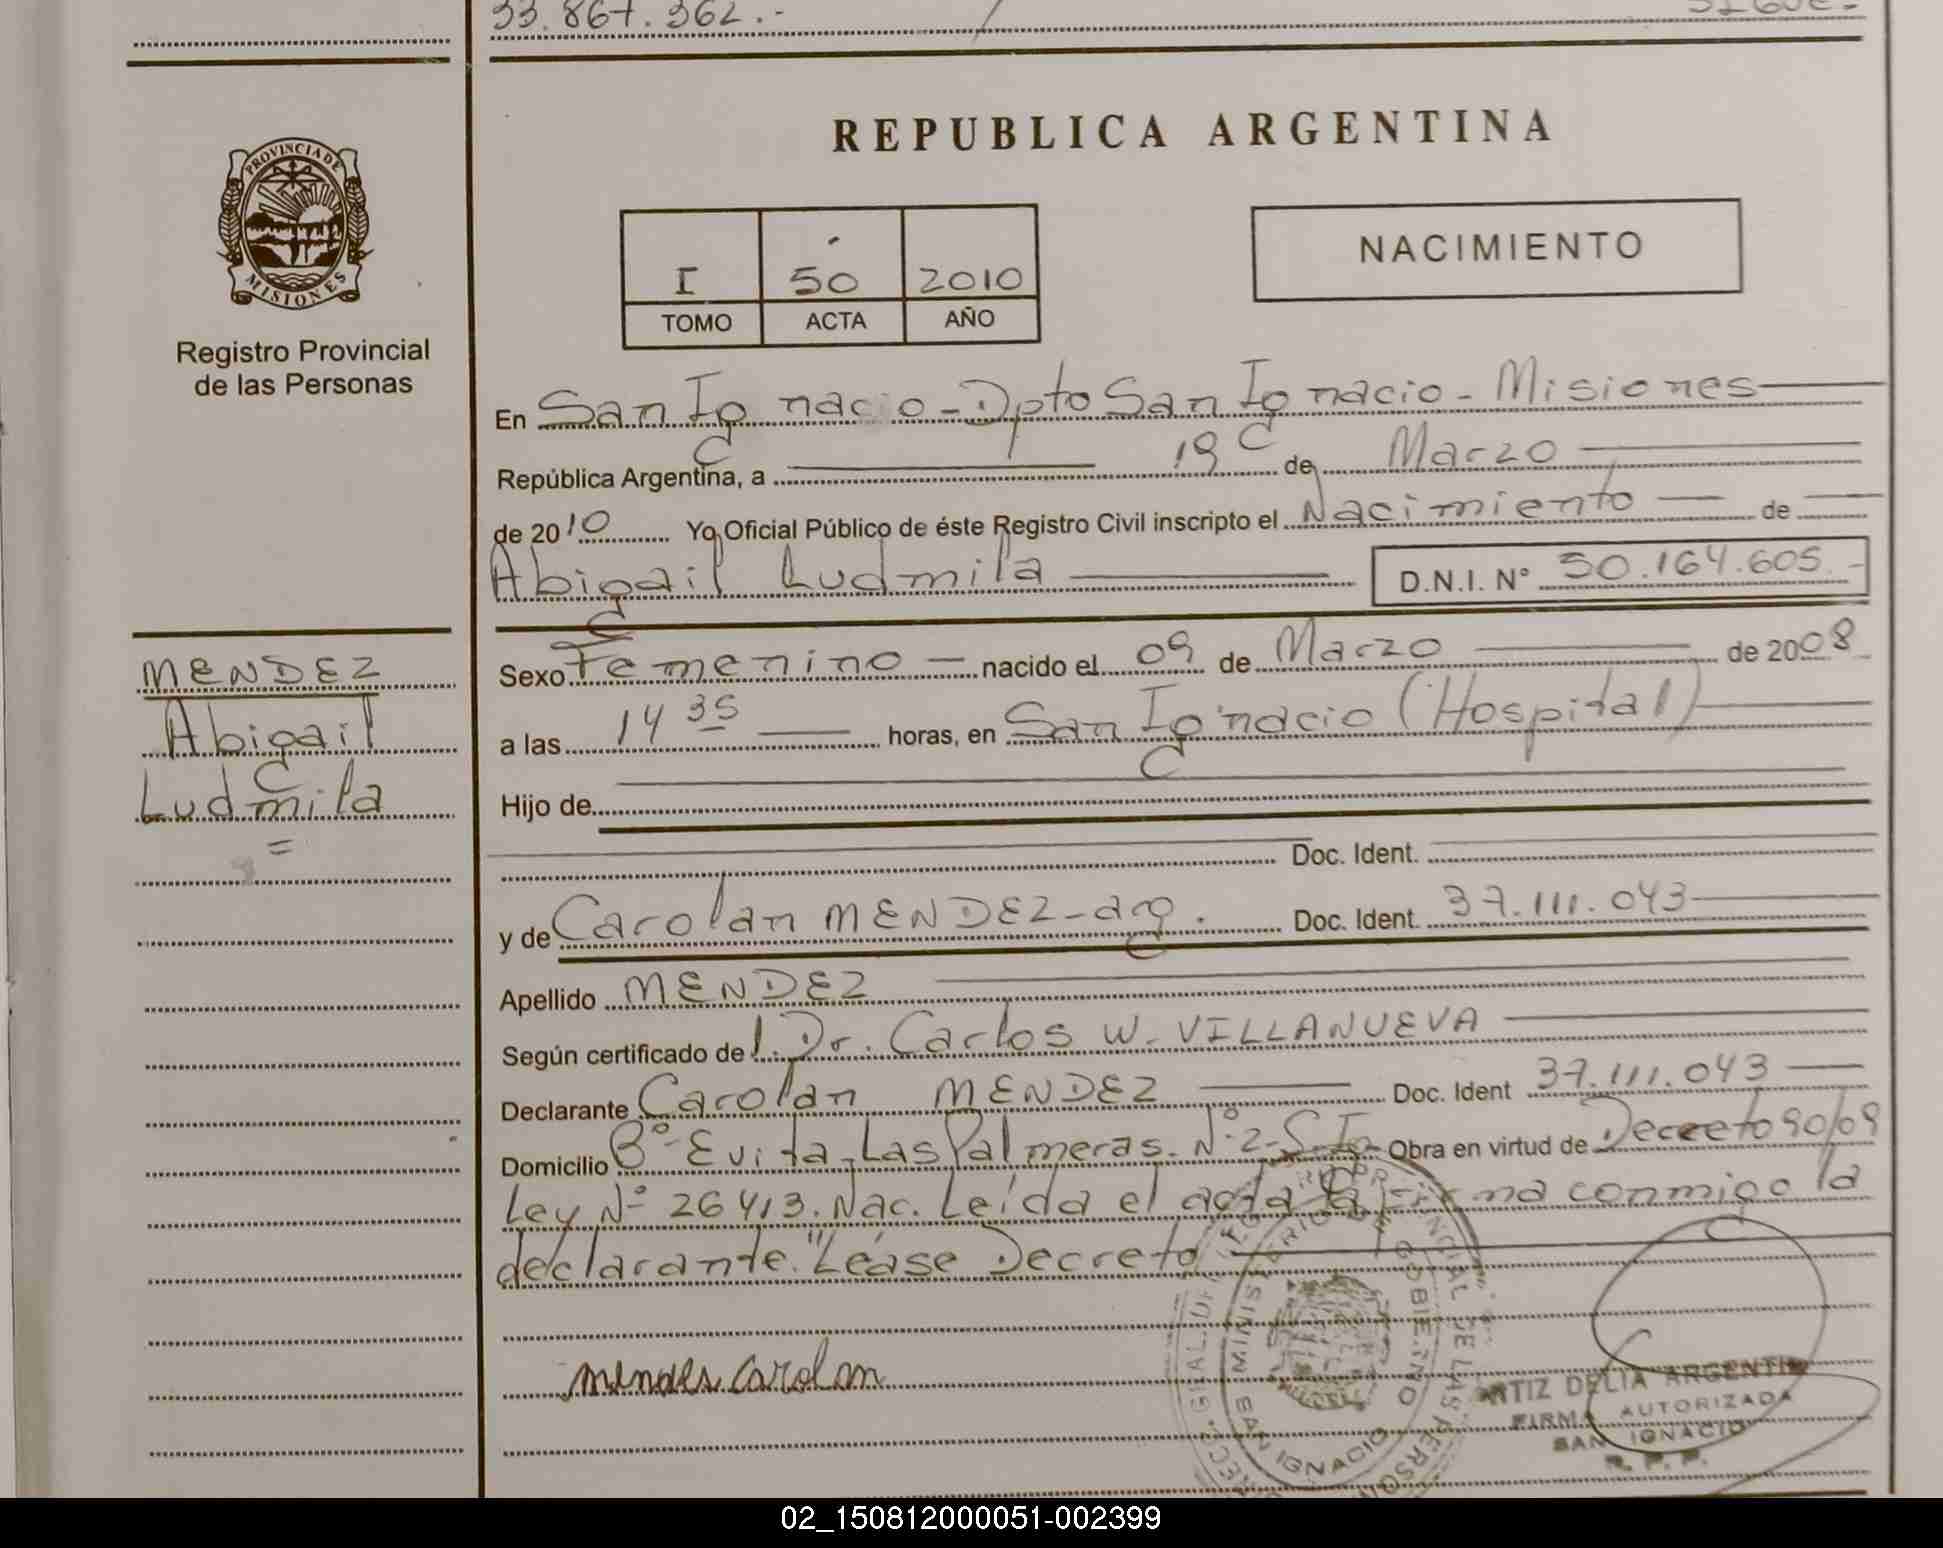 33.867.362.- / SIGUE.
REPUBLICA ARGENTINA
PROVINCIA DE
MISIONES
Registro Provincial
de las Personas
I 50 2010
TOMO ACTA AÑO
NACIMIENTO
En San Ignacio - Dpto San Ignacio - Misiones
República Argentina, a 19 de Marzo
de 2010 Yo Oficial Público de éste Registro Civil inscripto el Nacimiento de
Abigail Ludmila D.N.I. N° 50.164.605.-
MENDEZ
Abigail
Ludmila
=
Sexo Femenino - nacido el 09 de Marzo de 2008
a las 14 35 horas, en San Ignacio (Hospital)
Hijo de
Doc. Ident.
y de Carolan MENDEZ - arg. Doc. Ident. 37.111.043
Apellido MENDEZ
Según certificado del Dr. Carlos W. VILLANUEVA
Declarante Carolan MENDEZ Doc. Ident 37.111.043
Domicilio B°- Evita - Las Palmeras - N° 2 - S.I. Obra en virtud de Decreto 90/09
Ley N° 26413. Nac. Leída el acta la firma conmigo la
declarante. "Léase Decreto
mendes carolan
MINISTERIO DE GOBIERNO
SAN IGNACIO
DELIA ARGENTINA
FIRMA AUTORIZADA
SAN IGNACIO
R. P. P.
02_150812000051-002399